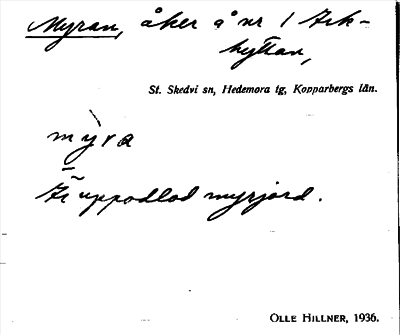 Myran, åker å nr 1 Ark-
hyttan,
St. Skedvi sn, Hedemora tg, Kopparbergs län.
mỳ̱ra
Är uppodlad myrjord.
OLLE HILLNER, 1936.